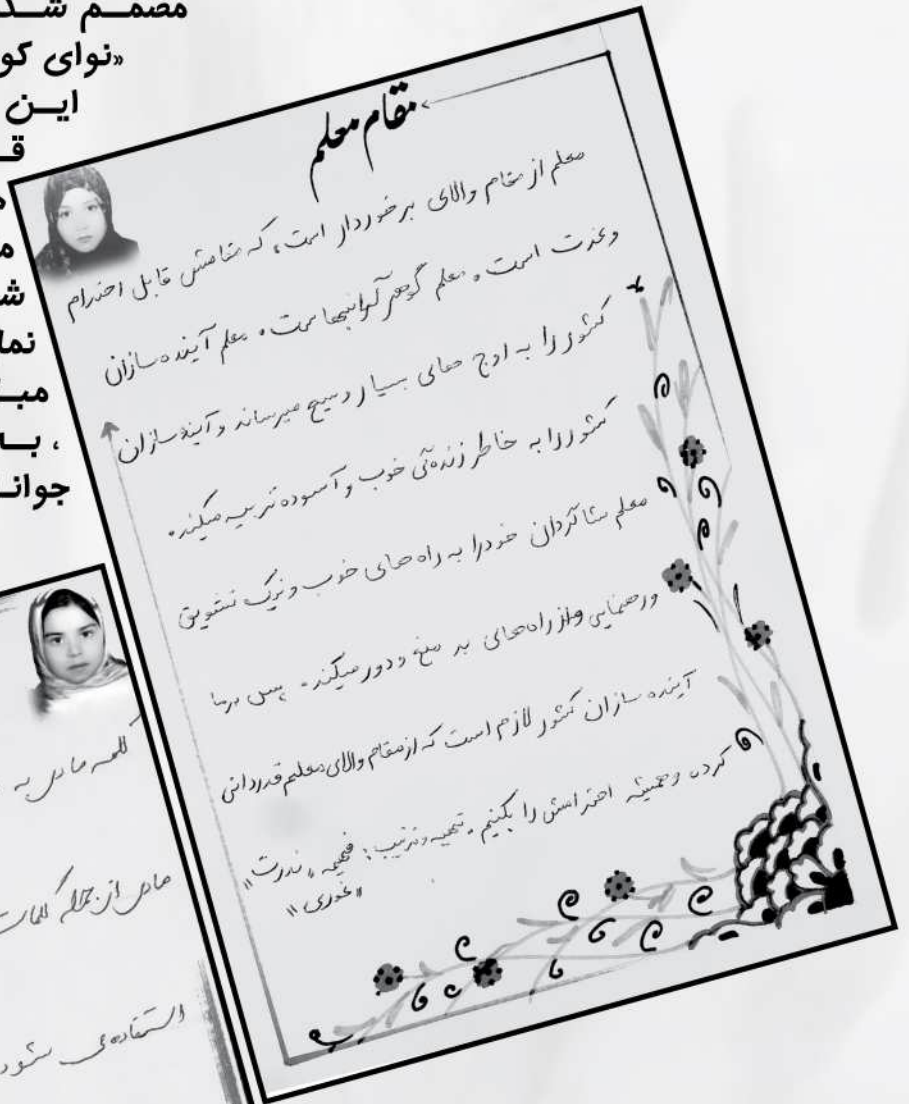 مصمم شد
«نوای کو
این
ق
م
ش
نما
مبـ
، بـا
جوانـ
مقام معلم
معلم از مقام والای برخوردار است، که مقامش قابل احترام
وعذت است. معلم گوهر گرانبهاست. معلم آینده سازان
کشور را به اوج های بسیار وسیع میرساند و آینده سازان
کشور را به خاطر زنده‌گی خوب و آسوده تربیه میکند.
معلم شاگردان خود را به راه های خوب و نیک تشویق
ورهنمایی واز راه های بد منع و دور میکند. پس برما
آینده سازان کشور لازم است که از مقام والای معلم قدردانی
کرده و همیشه احترامش را بکنیم. تهیه وترتیب: فهیمه "ندرت"
"غوری"
کلمه مادر به
مادر از جمله کلمات
استفاده می شود